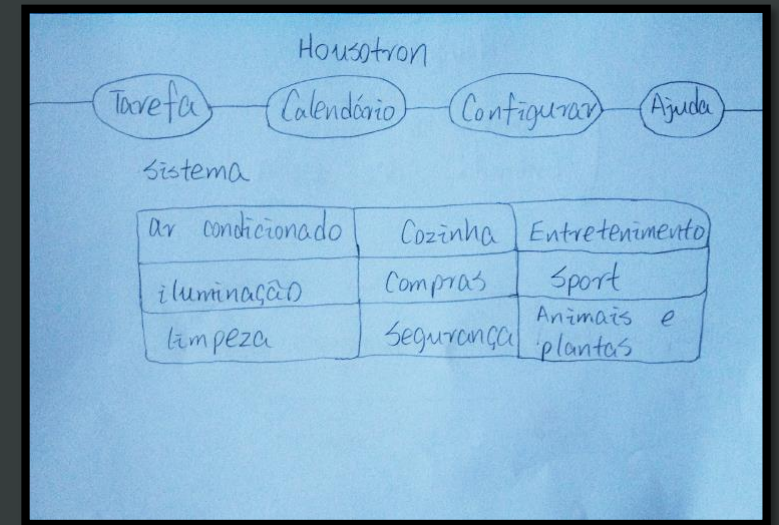 Housotron
Tarefa Calendário Configurar Ajuda
sistema
ar condicionado Cozinha Entretenimento
iluminação Compras Sport
limpeza Segurança Animais e
plantas